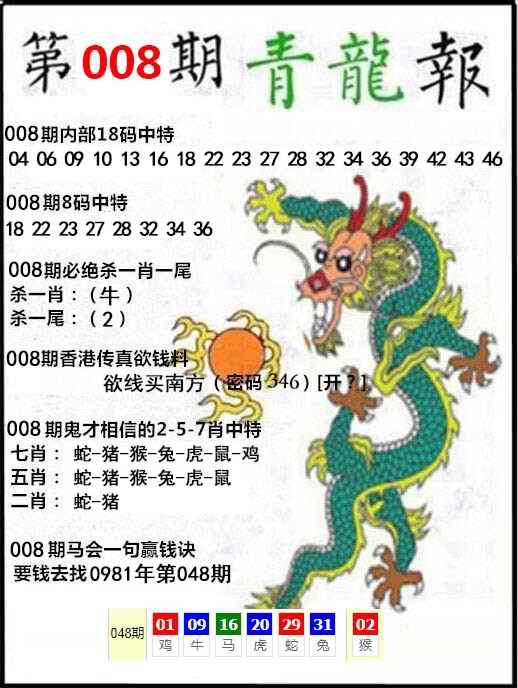 第008期青龍報
008期内部18码中特
04 06 09 10 13 16 18 22 23 27 28 32 34 36 39 42 43 46
008期8码中特
18 22 23 27 28 32 34 36
008期必绝杀一肖一尾
杀一肖：（牛）
杀一尾：（2）
008期香港传真欲钱料
欲线买南方（密码346）[开？]
008期鬼才相信的2-5-7肖中特
七肖： 蛇-猪-猴-兔-虎-鼠-鸡
五肖： 蛇-猪-猴-兔-虎-鼠
二肖： 蛇-猪
008期马会一句赢钱诀
要钱去找0981年第048期
048期 01 09 16 20 29 31 02
鸡 牛 马 虎 蛇 兔 猴